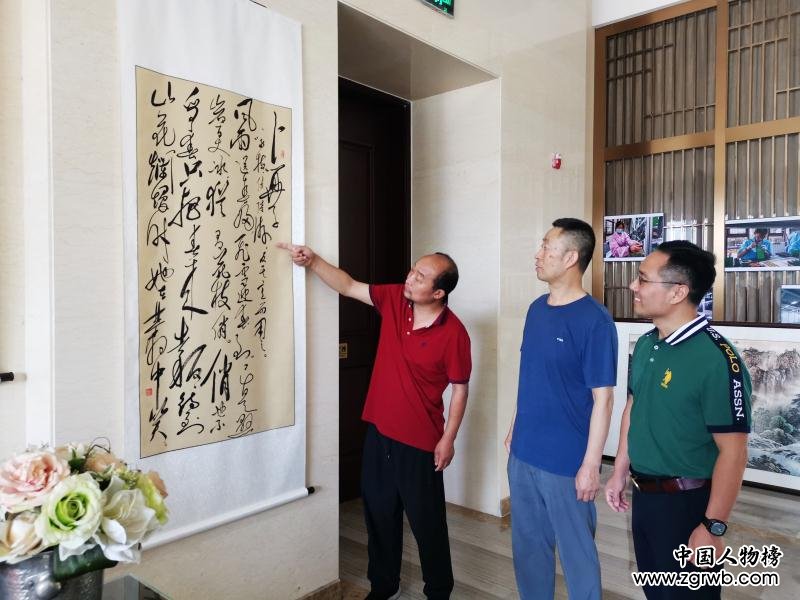 卜算子
反其意而用之
风雨送春归飞雪迎春到已是悬
崖百丈冰犹有花枝俏俏也不
争春只把春来报待到
山花烂漫时她在丛中笑
U.S. POLO ASSN.
中国人物榜
www.zgrwb.com